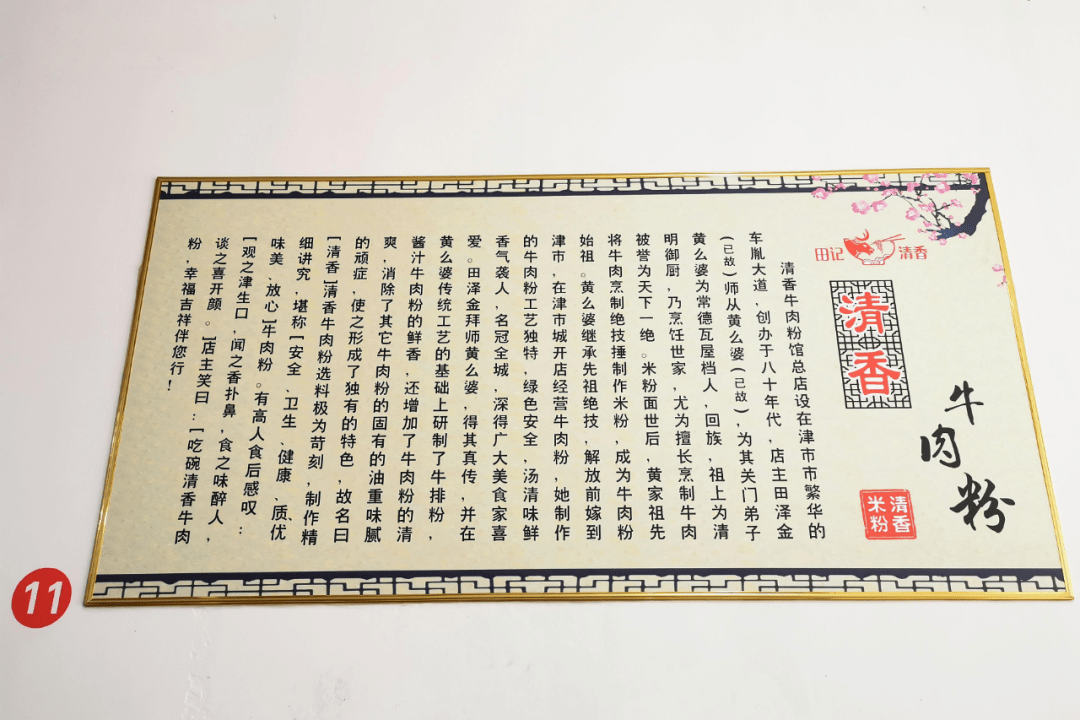 田记 清香
清香
牛肉粉
清香
米粉
清香牛肉粉馆总店设在津市市繁华的
车胤大道，创办于八十年代，店主田泽金
（已故）师从黄么婆（已故），为其关门弟子
黄么婆为常德瓦屋档人，回族，祖上为清
明御厨，乃烹饪世家，尤为擅长烹制牛肉
被誉为天下一绝。米粉面世后，黄家祖先
将牛肉烹制绝技捶制作米粉，成为牛肉粉
始祖。黄么婆继承先祖绝技，解放前嫁到
津市，在津市城开店经营牛肉粉，她制作
的牛肉粉工艺独特，绿色安全，汤清味鲜
香气袭人，名冠全城，深得广大美食家喜
爱。田泽金拜师黄么婆，得其真传，并在
黄么婆传统工艺的基础上研制了牛排粉，
酱汁牛肉粉的鲜香，还增加了牛肉粉的清
爽，消除了其它牛肉粉的固有的油重味腻
的顽症，使之形成了独有的特色，故名曰
[清香]清香牛肉粉选料极为苛刻，制作精
细讲究，堪称[安全、卫生、健康、质优、
味美、放心]牛肉粉。有高人食后感叹：
[观之津生口，闻之香扑鼻，食之味醉人，
谈之喜开颜。]店主笑曰：[吃碗清香牛肉
粉，幸福吉祥伴您行！
11